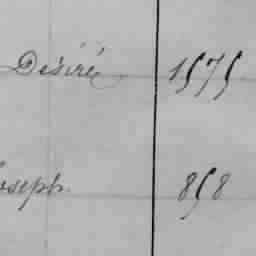 Désiré 1575
Joseph 858